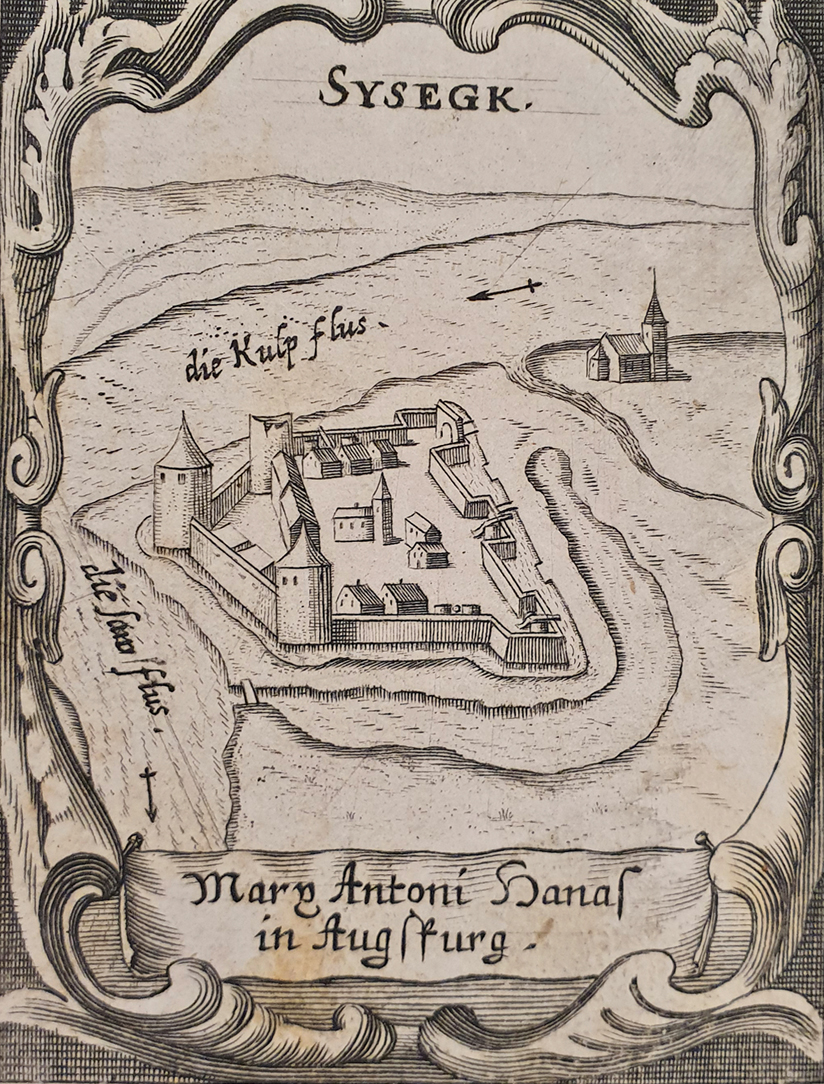 SYSEGK.
die Kulp flus.
die saw flus.
Mary Antoni Hanaſ
in Augſpurg.